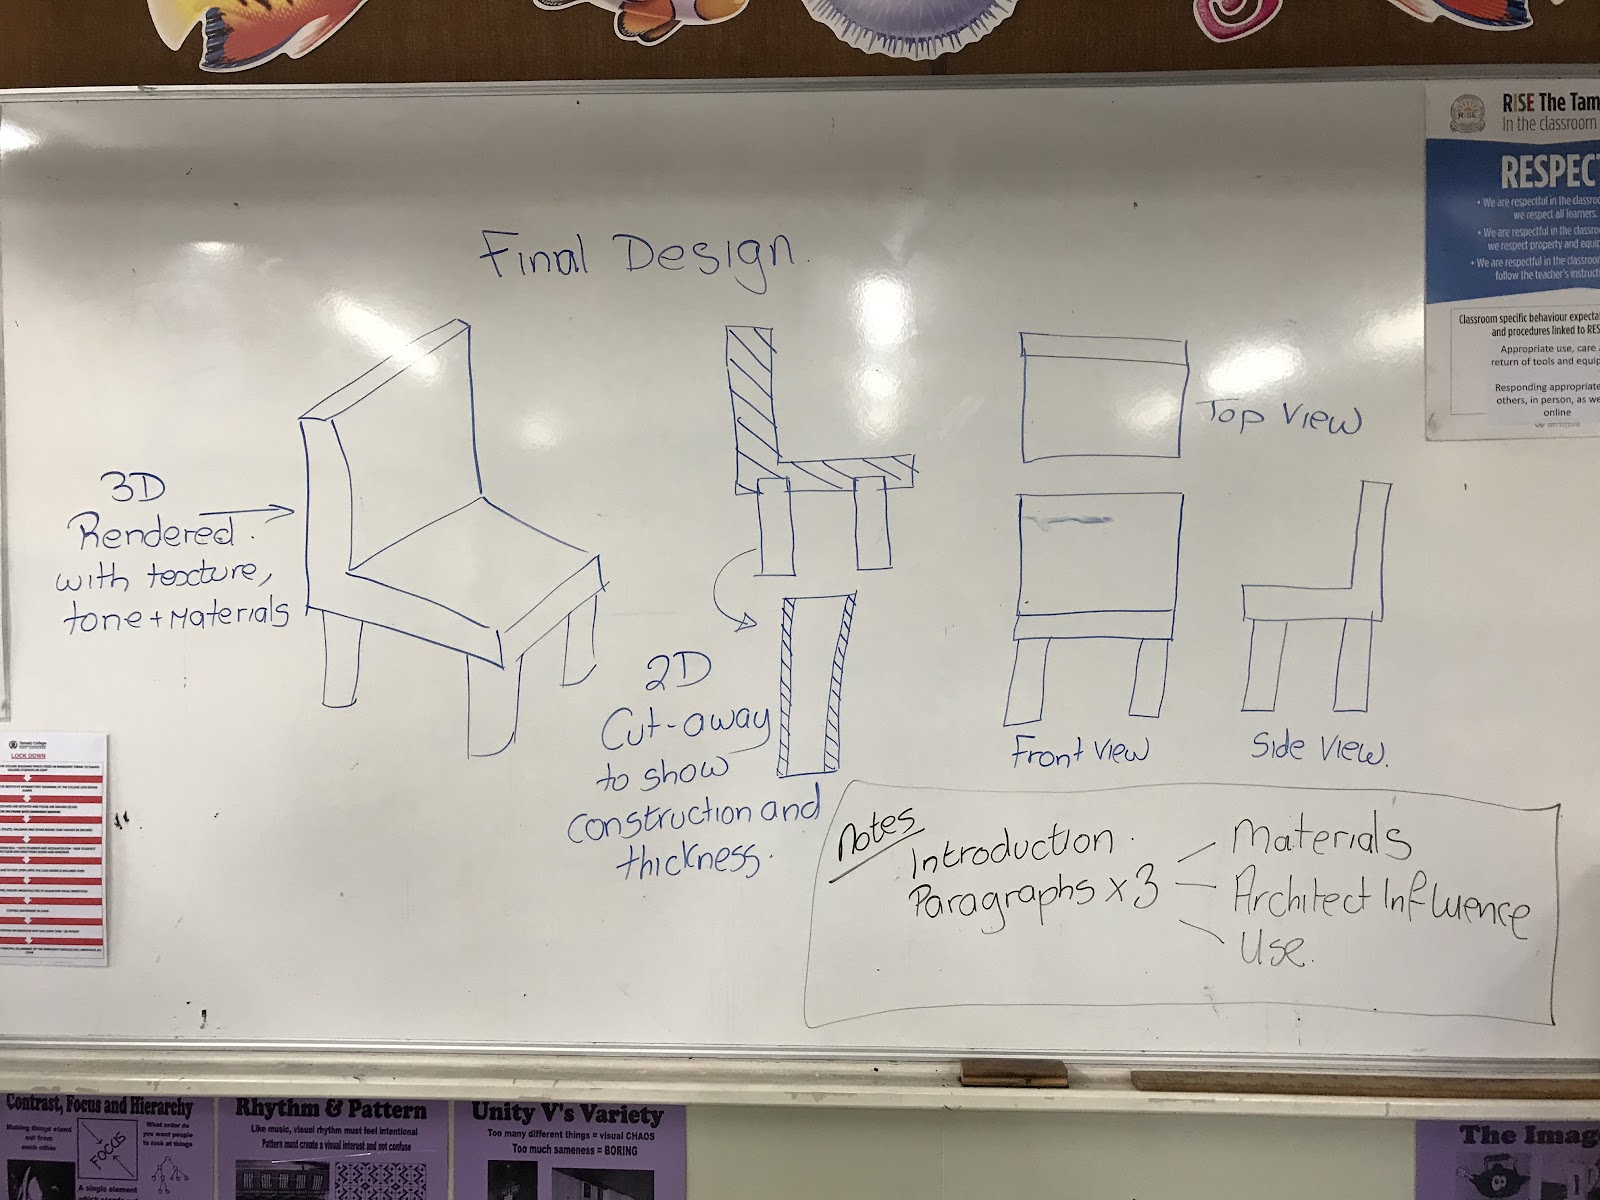 Final Design.
3D
Rendered.
with texture,
tone + Materials
2D
Cut-away
to show
construction and
thickness.
Top View
Front View
Side View.
Notes
Introduction.
Paragraphs x 3
Materials
Architect Influence
Use.
RISE The Tam
In the classroom
RISE
RESPEC
• We are respectful in the classro
we respect all learners.
• We are respectful in the classro
we respect property and equip
• We are respectful in the classroo
follow the teacher's instruct
Classroom specific behaviour expecta
and procedures linked to RES
Appropriate use, care
return of tools and equip
Responding appropriate
others, in person, as we
online
Tamaki College
LOCK DOWN
Contrast, Focus and Hierarchy
Making things stand
out from
each other
FOCUS
What order do
you want people
to look at things
A single element
Rhythm & Pattern
Like music, visual rhythm must feel intentional
Pattern must create a visual interest and not confuse
Unity V's Variety
Too many different things = visual CHAOS
Too much sameness = BORING
The Imag